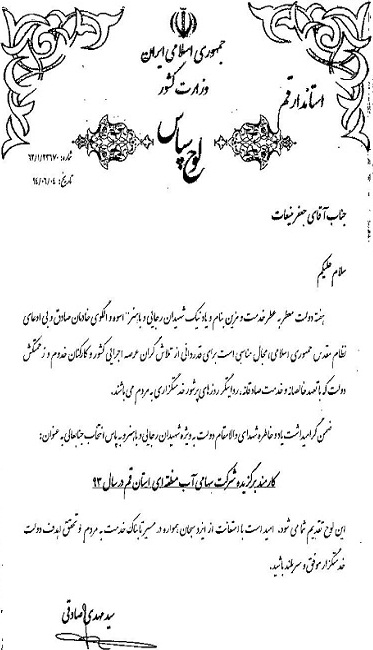 جمهوری اسلامی ایران
وزارت کشور
استاندار قم
لوح سپاس
شماره: ۶۲/۱/۹۳۶۷۰
تاریخ: ۹۴/۰۶/۰۴
جناب آقای جعفر نیعات
سلام علیکم
هفته دولت معطر به عطر خدمت و مزین بنام و یاد نیک شهیدان رجایی و باهنر" اسوه و الگوی خادمان صادق و بی ادعای
نظام مقدس جمهوری اسلامی، مجال مناسبی است برای قدردانی از تلاش گران عرصه اجرایی کشور و کارکنان خدوم و زحمتکش
دولت که با تعهد خالصانه و خدمت صادقانه، روایتگر روزهای پرشور خدمتگزاری به مردم می باشند.
ضمن گرامیداشت یاد و خاطره شهدای والامقام دولت به ویژه شهیدان رجایی و باهنر و به پاس انتخاب جنابعالی به عنوان:
کارمند برگزیده شرکت سهامی آب منطقه ای استان قم در سال ۹۳
این لوح تقدیم شما می شود. امید است با استعانت از ایزد سبحان همواره در مسیر تابناک خدمت به مردم و تحقق اهداف دولت
خدمتگزار موفق و سربلند باشید.
سید مهدی صادقی